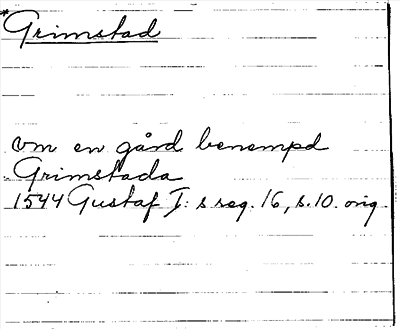 *Grimstad
vm en gård benempd
Grimstada
1544 Gustaf I: s reg. 16, s. 10. orig.